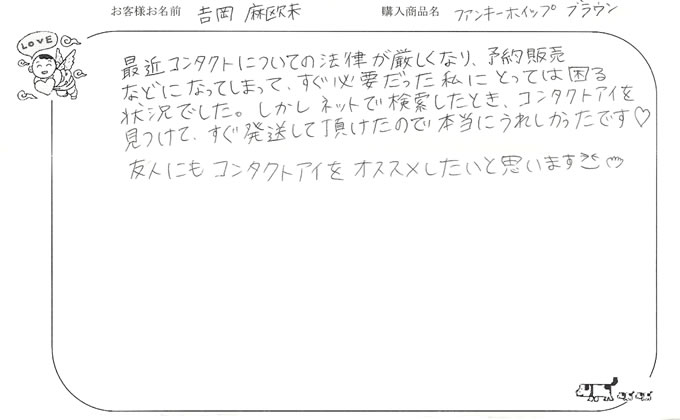 お客様お名前 吉岡 麻欧未 購入商品名 ファンキーホイップ ブラウン
LOVE
最近コンタクトについての法律が厳しくなり、予約販売
などになってしまって、すぐ必要だった私にとっては困る
状況でした。しかしネットで検索したとき、コンタクトアイを
見つけて、すぐ発送して頂けたので本当にうれしかったです♡
友人にもコンタクトアイをオススメしたいと思います